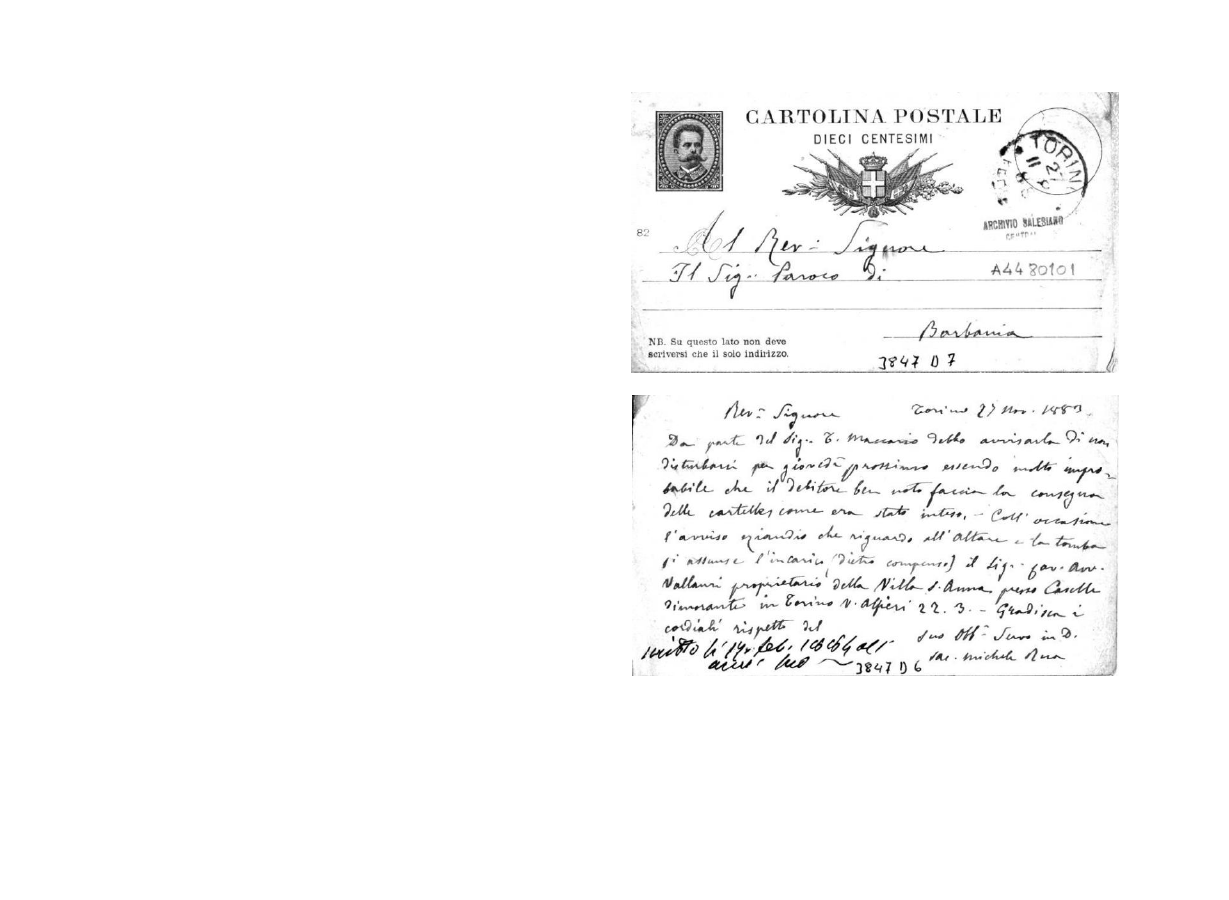 CARTOLINA POSTALE
DIECI CENTESIMI
TORINO
27
11
ARCHIVIO SALESIANO
82
Al Rev.º Signore
Il Sig.r Paroco di
A4480101
Barbania
NB. Su questo lato non deve
scriversi che il solo indirizzo.
3847 D 7
Rev.º Signore Torino 27 Nov. 1883.
Da parte del Sig.r T. Maccario debbo avvisarla di non
disturbarsi per giovedì prossimo essendo molto impro-
babile che il debitore ben noto faccia la consegna
delle cartelle come era stato inteso. - Coll'occasione
l'avviso eziandio che riguardo all'Altare e la tomba
si assunse l'incarico (dietro compenso) il Sig.r Cav. Avv.
Vallauri proprietario della Villa S. Anna presso Caselle
dimorante in Torino V. Alfieri 22. 3. - Gradisca i
cordiali rispetti del
suo Obb.º Servo in D.
Sac. Michele Rua
3847 D 6